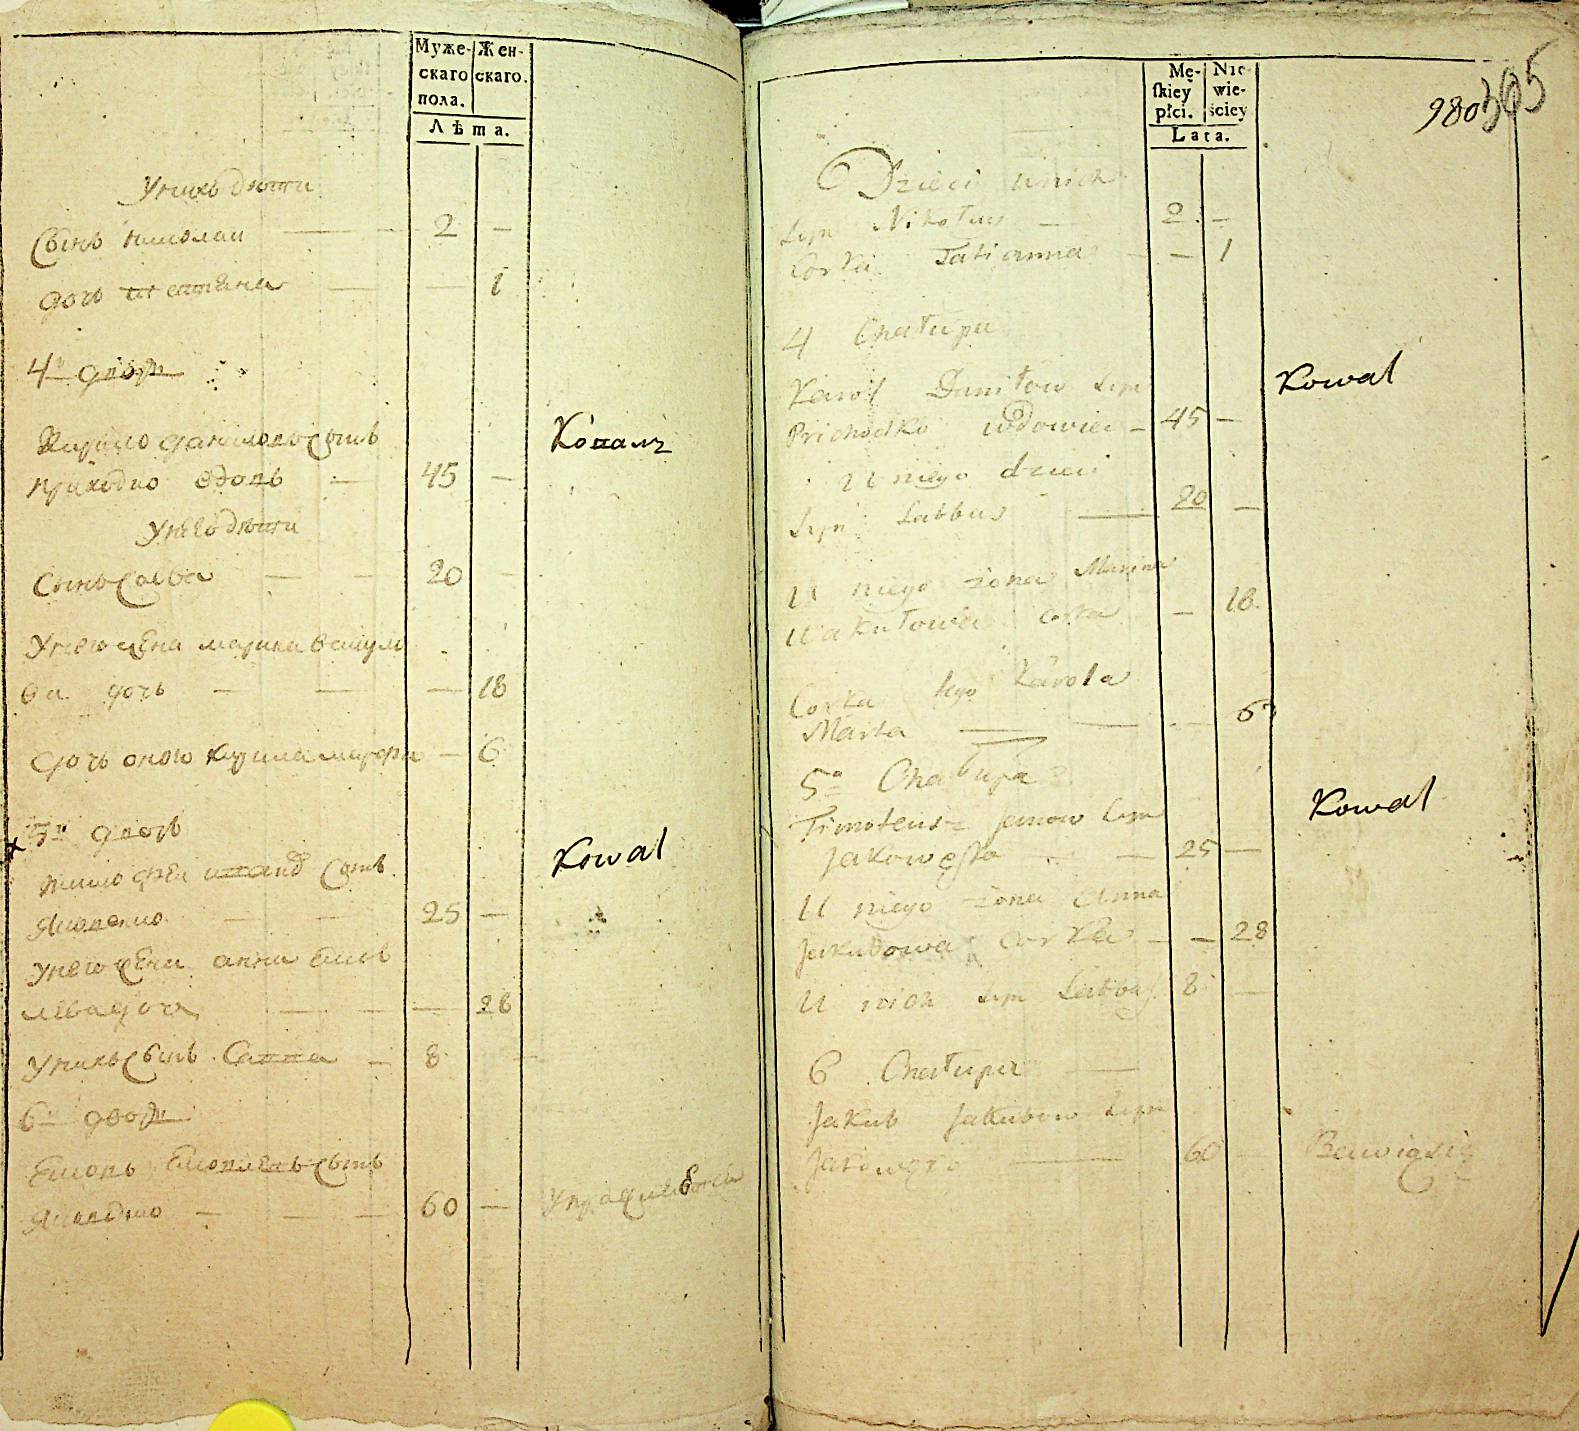 Муже-
скаго
пола.
Жен-
скаго.
Лѣта.
У нихъ дѣти
Сынъ николаи — 2 —
дочь татiяна — — 1
4й дворъ
Кирило даниловъ сынъ
Ковалъ
приходко вдовъ — 45 —
У него дѣти
Сынъ Савва — — 20 —
У него жена марина вакуло
ва дочь — — — 18
дочь оного кирила марфа — 6
5й дворъ
тимофеи сынъ
Kowal
Яковенко — — 25 —
У него жена анна Яков
лева дочь — — — 28
У нихъ сынъ Савва — 8
6й дворъ
Яковъ Яковлевъ сынъ
— — — 60 —
980 305
Mę-
skiey
płci.
Nie-
wie-
ściey
Lata.
Dzieci u nich
Syn Nikołay — 2 —
Corka Tatianna — — 1
4 Chałupa
Karol Daniłow Syn
Kowal
Prichodko wdowiec — 45 —
U niego dzieci
Syn Sabbas — 20 —
U niego żona Marina
Wakułowa corka — 18
Corka tego Karola
Marta — — — 6
5a Chałupa
Timoteusz Janow Syn
Kowal
— 25 —
U niego żona Anna
Jakubowa Corka — — 28
U nich syn Sabbas 8 —
6 Chałupa —
Jakub Jakubow Syn
— 60 —